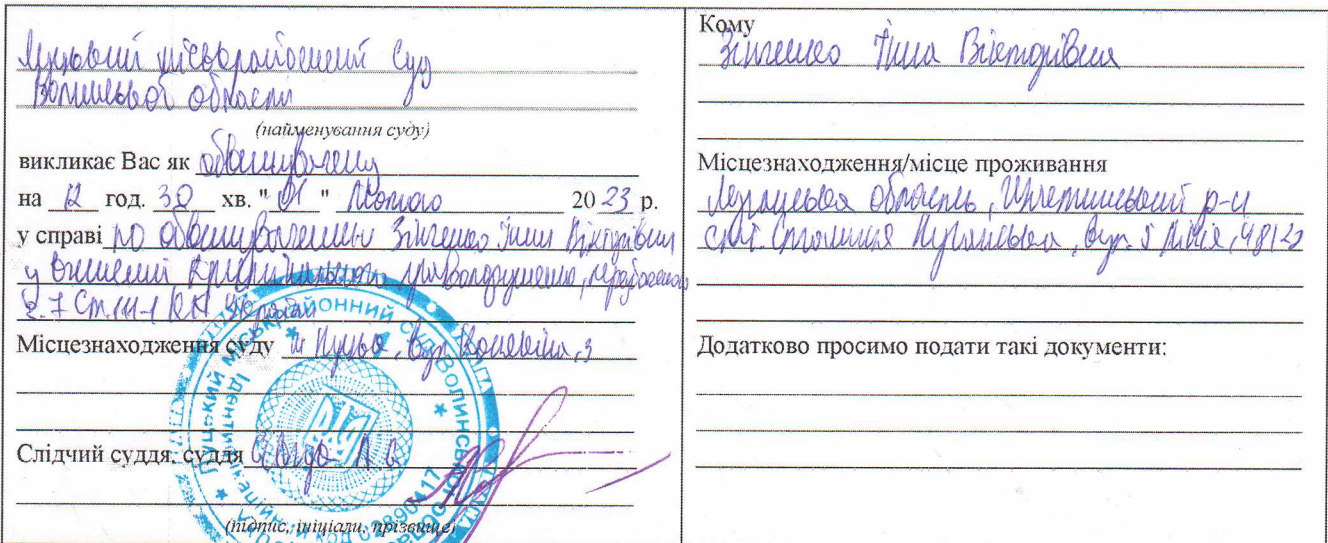 Луцький міськрайонний суд
Волинської області
(найменування суду)
викликає Вас як обвинувачену
на 12 год. 30 хв. " 01 " лютого 2023 р.
у справі по обвинуваченню Зінченко Інни Вікторівни
у вчиненні кримінального правопорушення, передбаченого
ч. 7 ст. 111-1 КК України
Місцезнаходження суду м. Луцьк, вул. Конякіна, 3
Слідчий суддя, суддя
(підпис, ініціали, прізвище)
Кому
Зінченко Інна Вікторівна
Місцезнаходження/місце проживання
Луганська область, Щастинський р-н
смт. Станиця Луганська, вул. 5 Лінія, 48/22
Додатково просимо подати такі документи:
Луцький міськрайонний суд Волинської
Ідентифікаційний код 02890417